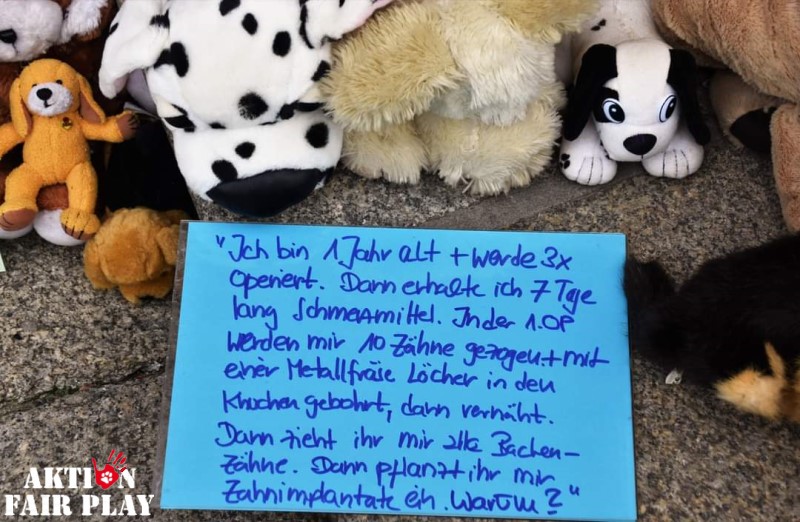 "Ich bin 1 Jahr alt + werde 3x
Operiert. Dann erhalte ich 7 Tage
lang Schmerzmittel. In der 1.OP
werden mir 10 Zähne gezogen + mit
einer Metallfräse Löcher in den
Knochen gebohrt, dann vernäht.
Dann zieht ihr mir alle Backen-
zähne. Dann pflanzt ihr mir
Zahnimplantate ein. Warum?"
AKTION
FAIR PLAY